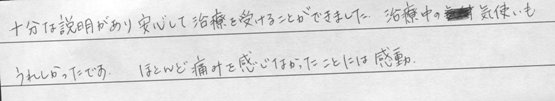 十分な説明があり安心して治療を受けることができました. 治療中の気使いも
うれしかったです. ほとんど痛みを感じなかったことには感動.